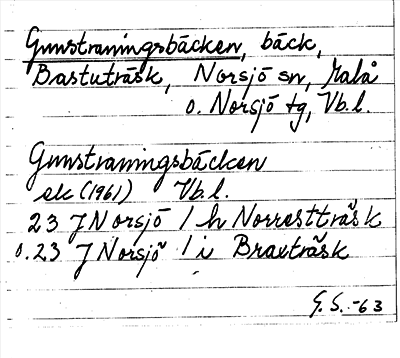 Gunstraningsbäcken, bäck,
Bastuträsk, Norsjö sn, Malå
o. Norsjö tg, Vb.l.
Gunstraningsbäcken
ek (1961) Vb.l.
23 J Norsjö / h Norrestträsk
o. 23 J Norsjö / i Braxträsk
G. S. -63